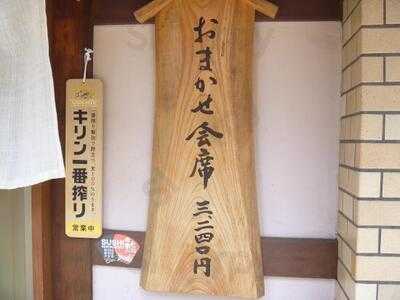 おまかせ会席 三二四〇円
キリン一番搾り
営業中
SUSHI